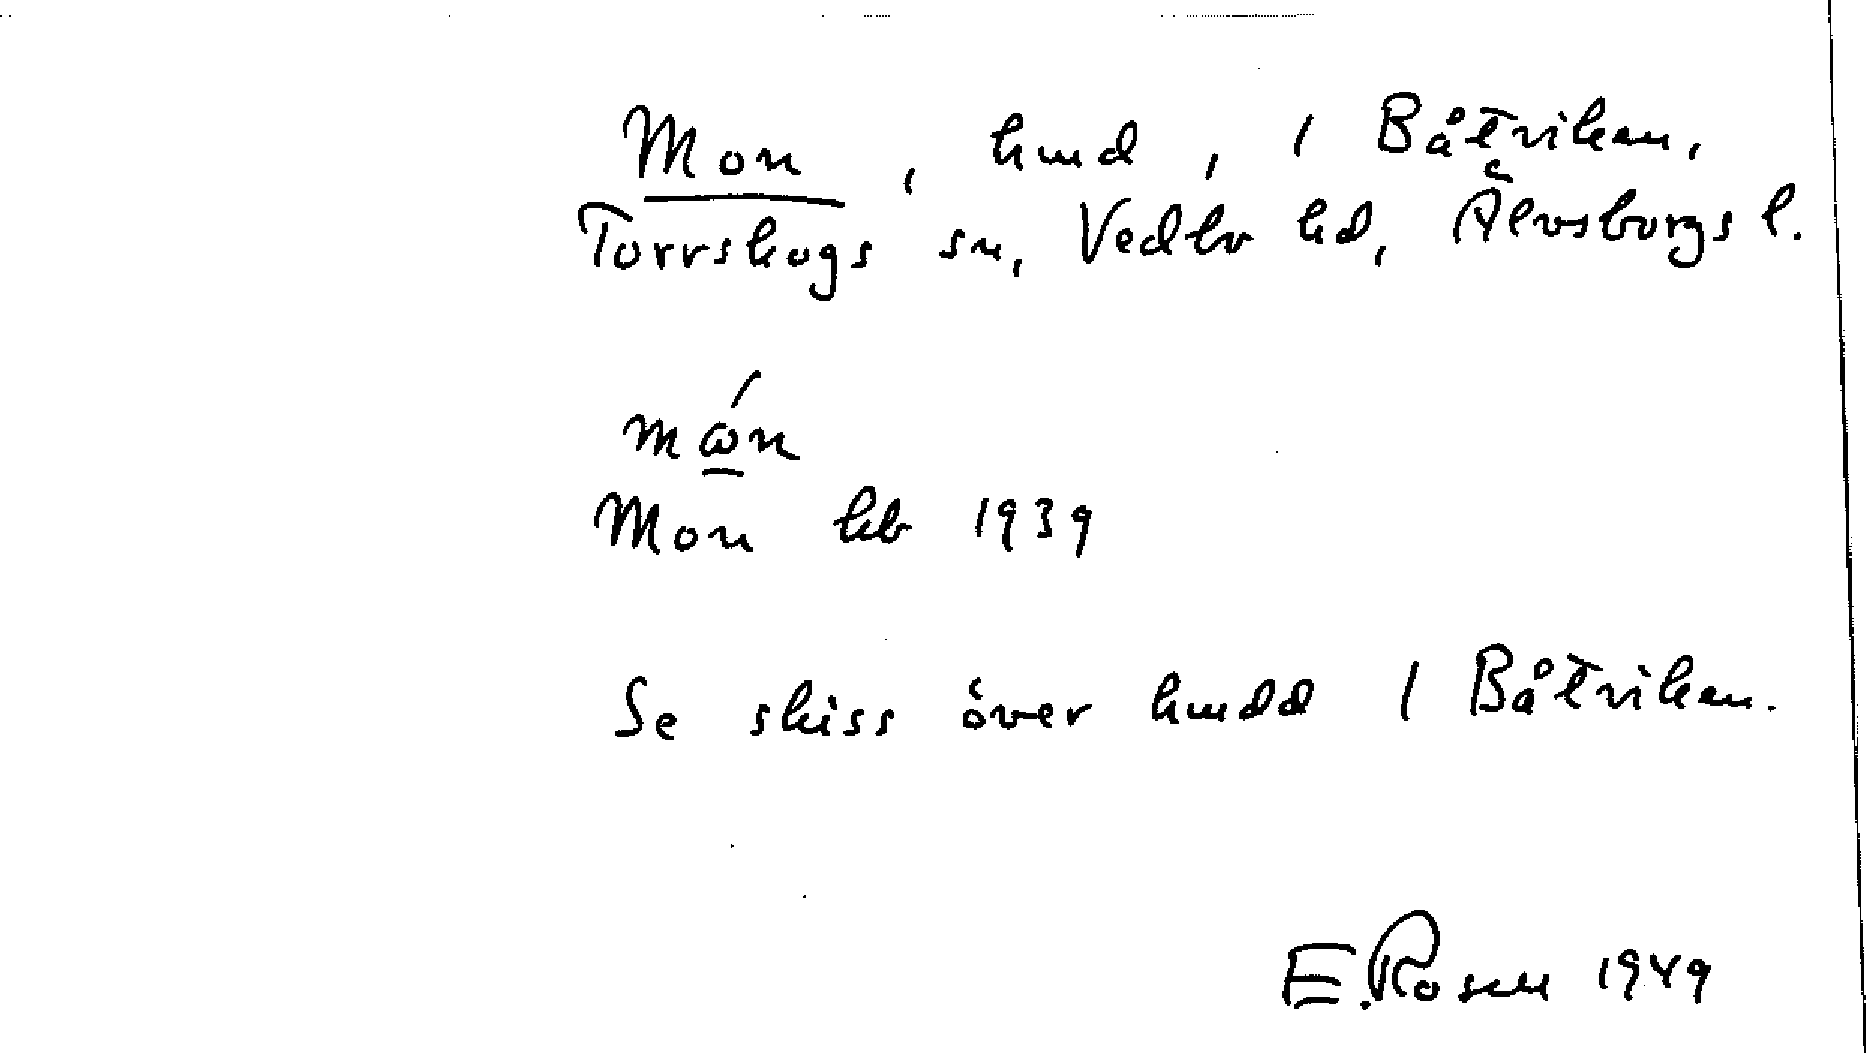 Mon, hmd, 1 Båtviken,
Torrskogs sn, Vedbo hd, Älvsborgs l.
mώ̲n
Mon kb 1939
Se skiss över hmdd 1 Båtviken.
E. Rosen 1949